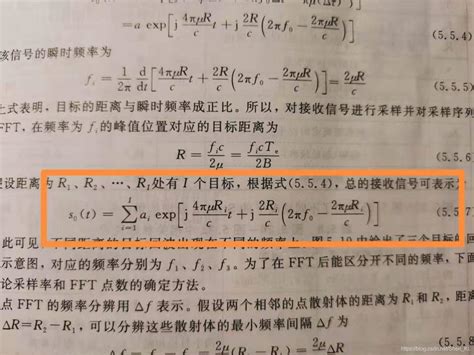 = a exp[j 4πμR/c t + j 2R/c (2πf₀ − 2πμR/c)] (5.5.4)
该信号的瞬时频率为
fᵢ = 1/2π d/dt [4πμR/c t + 2R/c (2πf₀ − 2πμR/c)] = 2μR/c (5.5.5)
上式表明,目标的距离与瞬时频率成正比。所以,对接收信号进行采样并对采样序列
FFT,在频率为 fᵢ 的峰值位置对应的目标距离为
R = fᵢc/2μ = fᵢcTₑ/2B (5.5.6
设距离为 R₁、R₂、…、R_I 处有 I 个目标,根据式(5.5.4),总的接收信号可表示为
s₀(t) = ∑ᵢ₌₁ᴵ aᵢ exp[j 4πμRᵢ/c t + j 2Rᵢ/c (2πf₀ − 2πμRᵢ/c)] (5.5.7
此可见,不同距离的目标回波出现在不同的频率上。图 5.10 中给出了三个目标的回
示意图,对应的频率分别为 f₁、f₂、f₃。为了在 FFT 后能区分开不同的频率,下面
论采样率和 FFT 点数的确定方法。
点 FFT 的频率分辨用 Δf 表示。假设两个相邻的点散射体的距离为 R₁ 和 R₂,距离
ΔR=R₂−R₁,可以分辨这些散射体的最小频率间隔 Δf 为